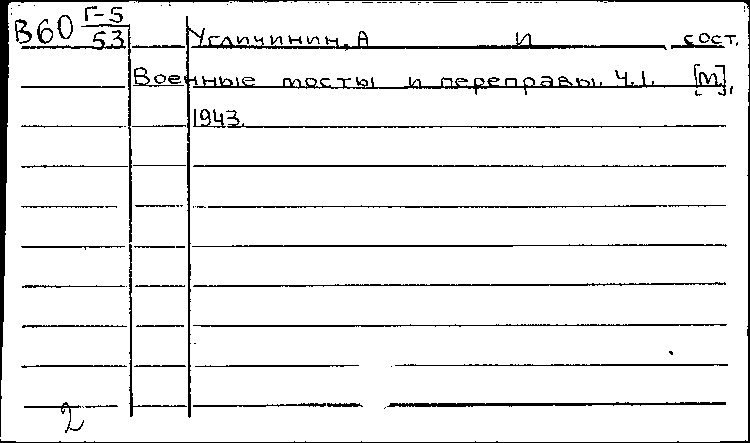 В60 Г-5
53 Угличинин, А И сост.
Военные мосты и переправы. Ч.1. [М],
1943.
2